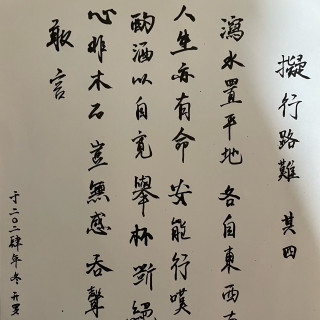 擬行路難 其四
瀉水置平地 各自東西南
人生亦有命 安能行嘆
酌酒以自寬 舉杯斷絕
心非木石豈無感吞聲
敢言
于二〇二肆年冬月